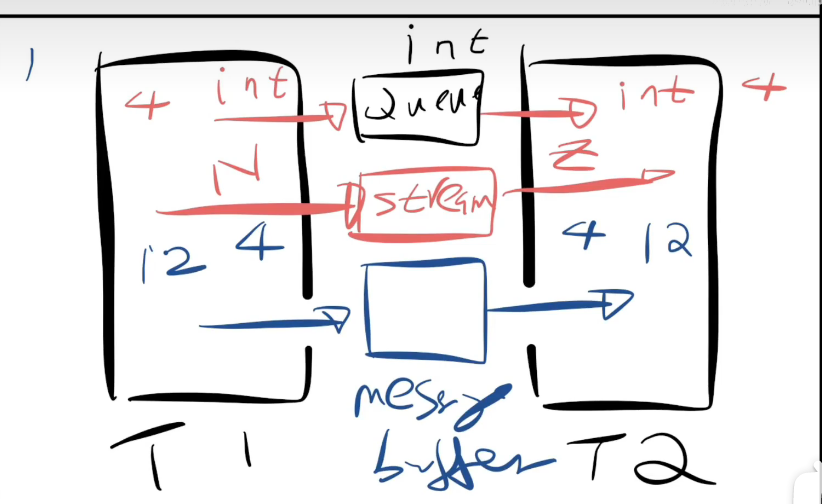 int
4 int Queue int 4
N stream Z
12 4 4 12
message
buffer
T1 T2